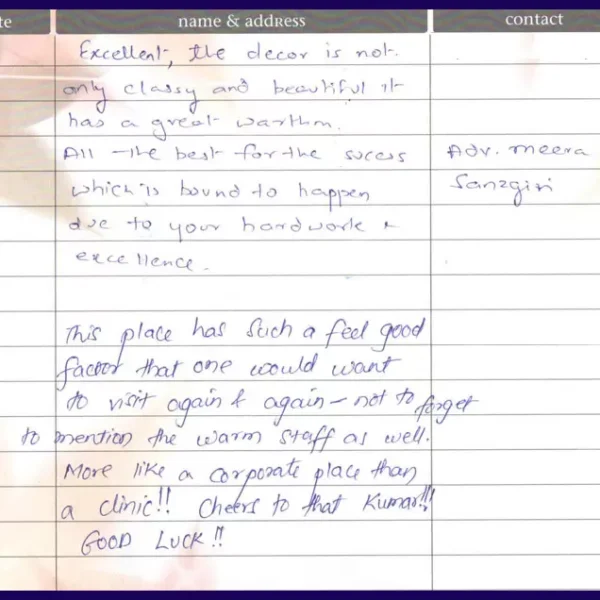 te name & address contact
Excellent, the decor is not
only classy and beautiful it
has a great warthm.
All the best for the sucess
Adv. meera
which is bound to happen
Sanzgiri
due to your hardwork &
excellence.
This place has such a feel good
factor that one would want
to visit again & again - not to forget
to mention the warm staff as well.
More like a corporate place than
a clinic!! Cheers to that Kumar!!!
GOOD LUCK!!